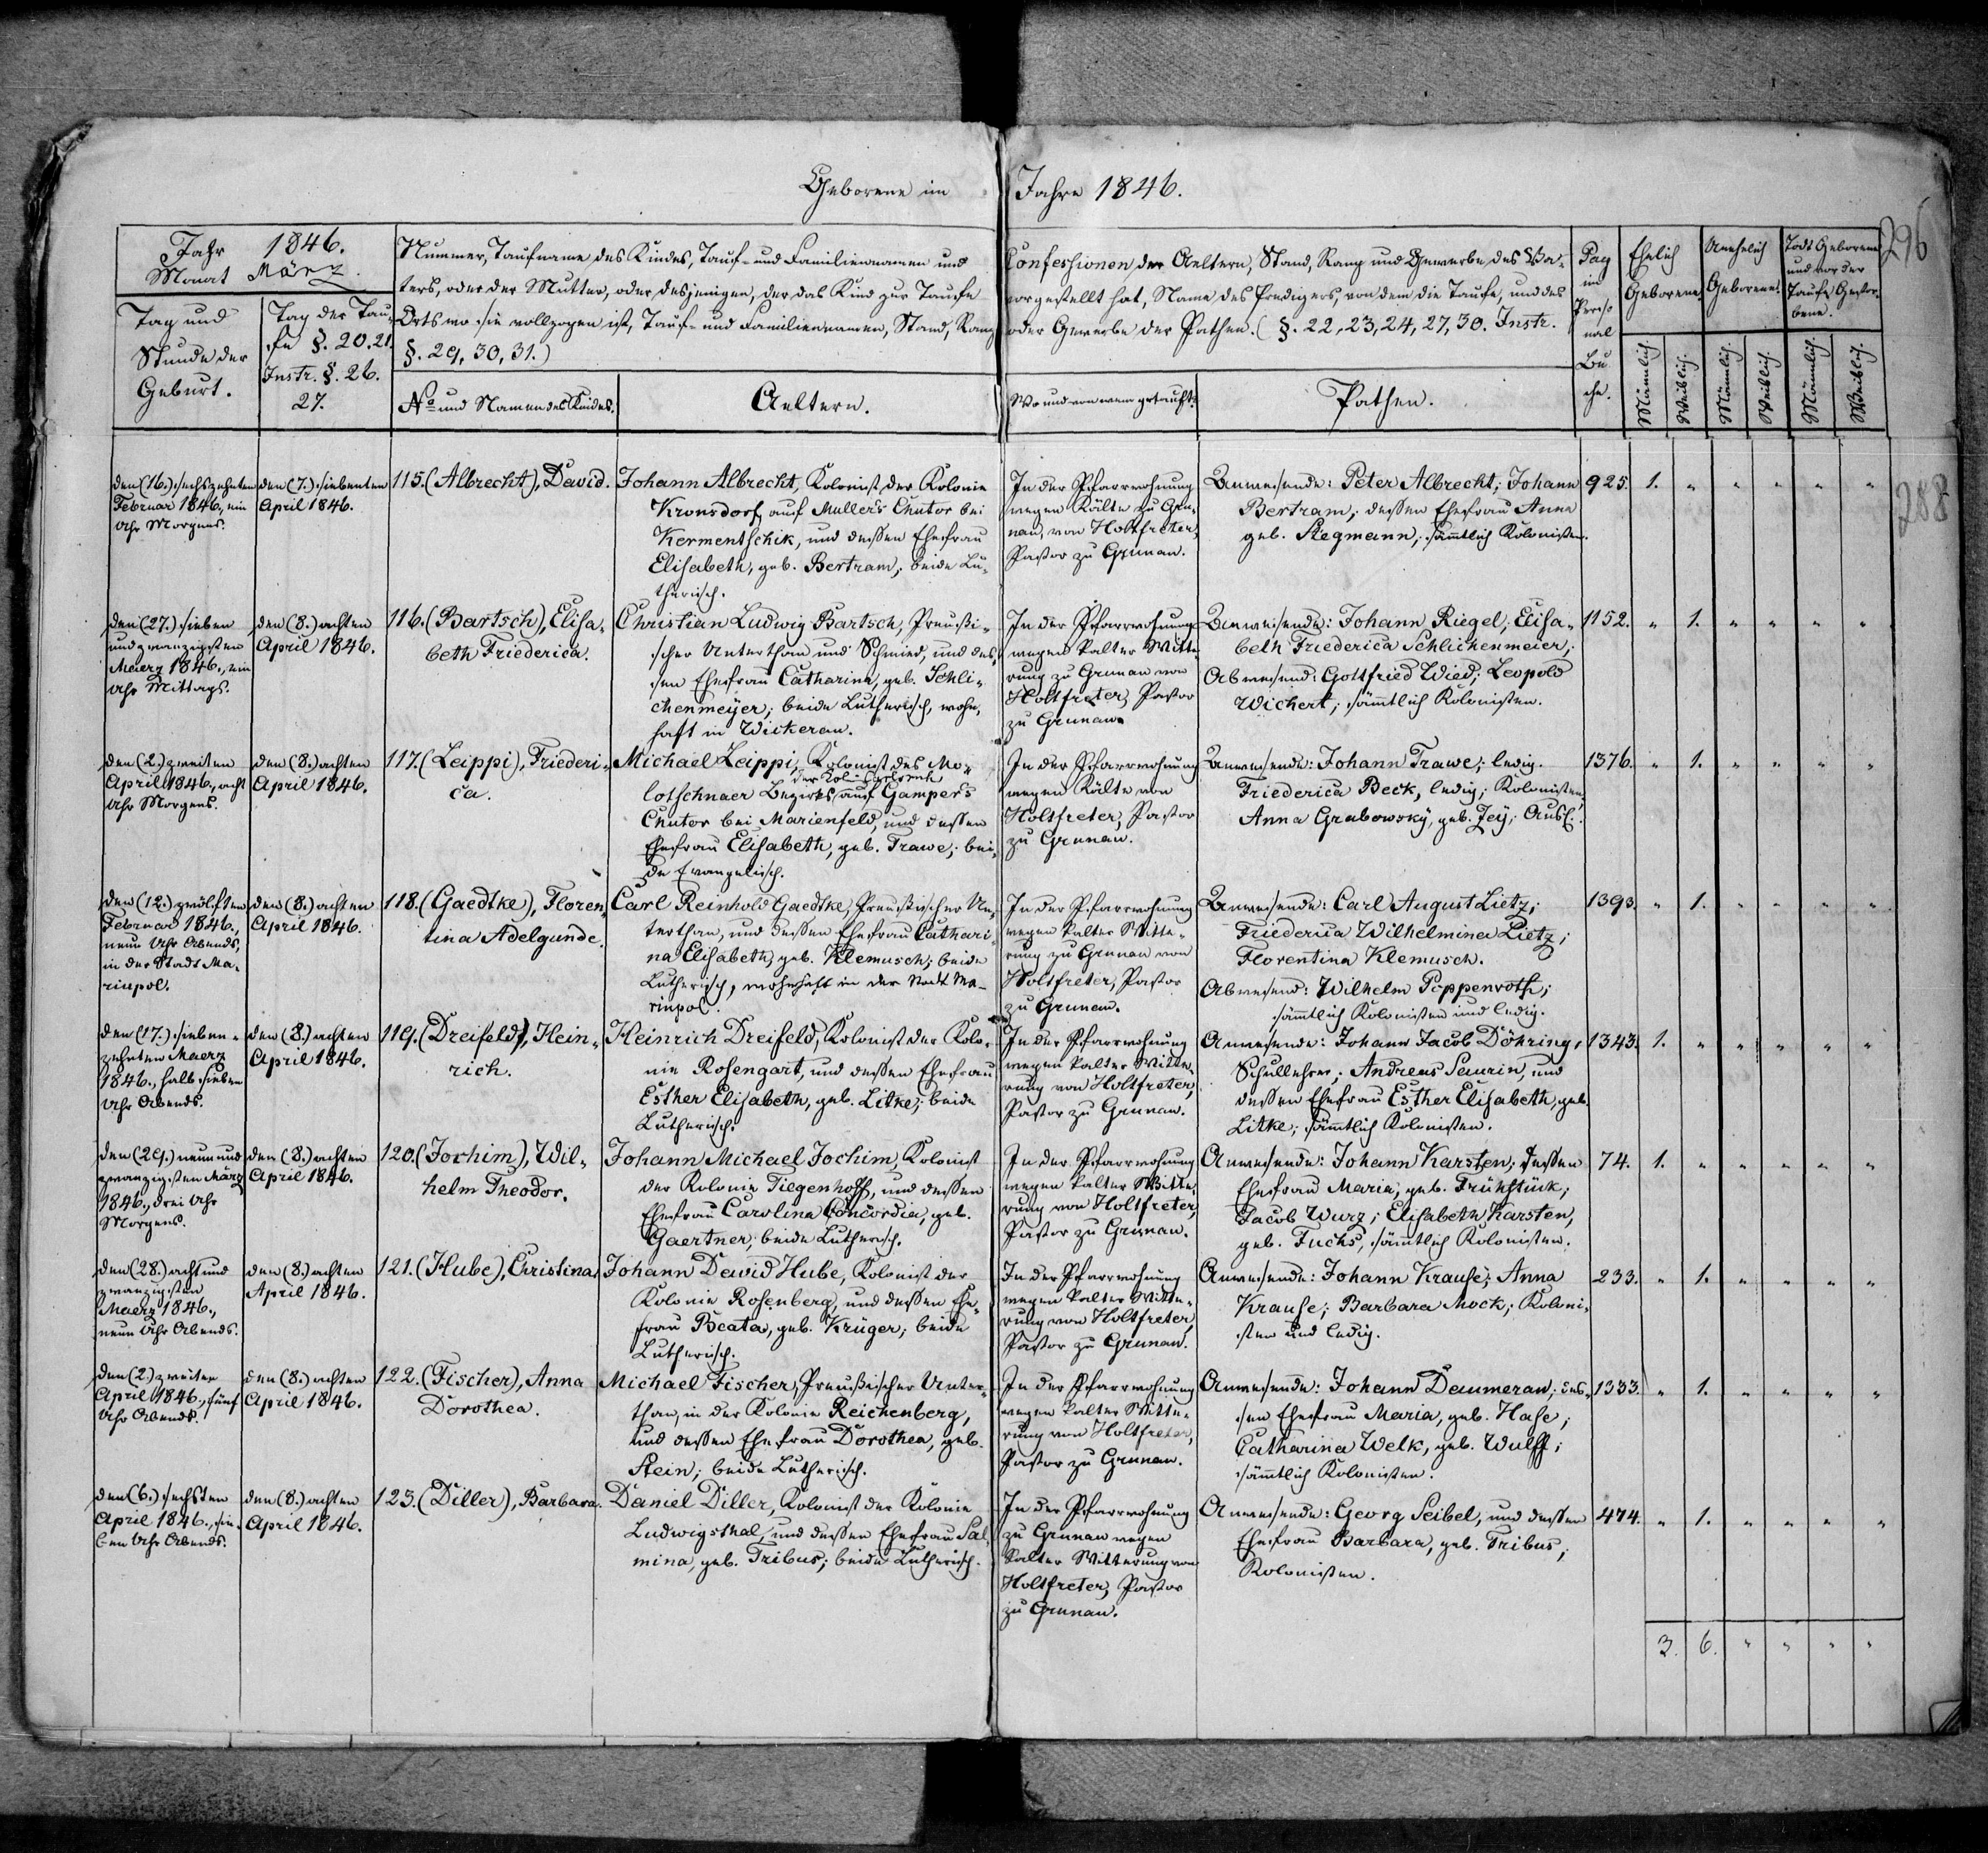 Geborene im Jahre 1846.
296
208
Jahr 1846.
Monat März.
Tag und
Stunde der
Geburt.
Tag der Tau-
fe §. 20.21.
Instr. §. 26.
27.
Nummer, Taufname des Kindes, Tauf- und Familiennamen und Confessionen der Aeltern, Stand, Rang und Gewerbe des Va-
ters, oder der Mutter, oder desjenigen, der das Kind zur Taufe vorgestellt hat, Name des Predigers, von dem die Taufe, und des
Orts wo sie vollzogen ist, Tauf- und Familiennamen, Stand, Rang oder Gewerbe der Pathen. (§. 22, 23, 24, 27, 30. Instr.
§. 29, 30, 31.)
No und Namen des Kindes.
Aeltern.
Wo und von wem getauft.
Pathen.
Pag
im
Perso
nal
Bu
che.
Ehelich
Geborene
Unehelich
Geborene
Todt Geborene
und vor der
Taufe Gestor-
bene.
Männlich.
Weiblich.
Männlich.
Weiblich.
Männlich.
Weiblich.
den (16.) sechszehnten
Februar 1846, ein
Uhr Morgens.
den (7.) siebenten
April 1846.
115. (Albrecht), David.
Johann Albrecht, Kolonist der Kolonie
Kronsdorf auf Muller's Chutor bei
Kermentschik, und dessen Ehefrau
Elisabeth, geb. Bertram; beide Lu-
therisch.
In der Pfarrwohnung
wegen Kälte zu Gru-
nau, von Holtfreter,
Pastor zu Grunau.
Anwesende: Peter Albrecht; Johann
Bertram; dessen Ehefrau Anna
geb. Stegmann; sämtlich Kolonisten.
925. 1. " " " " "
den (27.) sieben
und zwanzigsten
Maerz 1846., ein
Uhr Mittags.
den (8.) achten
April 1846.
116. (Bartsch), Elisa-
beth Friederica.
Christian Ludwig Bartsch, Preußi-
scher Unterthan und Schmied, und des-
sen Ehefrau Catharina, geb. Schli-
chenmeyer; beide Lutherisch, wohn-
haft in Wickerau.
In der Pfarrwohnung
wegen kalter Witte-
rung zu Grunau von
Holtfreter, Pastor
zu Grunau.
Anwesende: Johann Riegel; Elisa-
beth Friederica Schlichenmeier;
Abwesend: Gottfried Wied; Leopold
Wichert; sämmtlich Kolonisten.
1152. " 1. " " " "
den (2.) zweiten
April 1846., acht
Uhr Morgens.
den (8.) achten
April 1846.
117. (Leippi), Friederi-
ca.
Michael Leippi, Kolonist des Mo-
der Kol. Carlsruh
lotschnaer Bezirks auf Gamper's
Chutor bei Marienfeld, und dessen
Ehefrau Elisabeth, geb. Trawe; bei-
de Evangelisch.
In der Pfarrwohnung
wegen Kälte von
Holtfreter, Pastor
zu Grunau.
Anwesende: Johann Trawe; ledig.
Friederica Beck, ledig; Kolonisten,
Anna Grabowsky, geb. Zey; Ausl.
1376. " 1. " " " "
den (12.) zwölften
Februar 1846.,
neun Uhr Abends,
in der Stadt Ma-
riupol.
den (8.) achten
April 1846.
118. (Gaedtke), Floren-
tina Adelgunde.
Carl Reinhold Gaedtke, Preussischer Un-
terthan, und dessen Ehefrau Cathari-
na Elisabeth, geb. Klemusch; beide
Lutherisch, wohnhaft in der Stadt Ma-
riupol.
In der Pfarrwohnung
wegen kalter Witte-
rung zu Grunau von
Holtfreter, Pastor
zu Grunau.
Anwesende: Carl August Lietz;
Friederica Wilhelmina Lietz;
Florentina Klemusch.
Abwesend: Wilhelm Poppenroth;
sämmtlich Kolonisten und ledig.
1393. " 1. " " " "
den (17.) sieben-
zehnten Maerz
1846., halb sieben
Uhr Abends.
den (8.) achten
April 1846.
119. (Dreifeld), Hein-
rich.
Heinrich Dreifeld, Kolonist der Kolo-
nie Rosengart, und dessen Ehefrau
Esther Elisabeth, geb. Litke; beide
Lutherisch.
In der Pfarrwohnung
wegen kalter Witte-
rung von Holtfreter,
Pastor zu Grunau.
Anwesende: Johann Jacob Döhring,
Schullehrer; Andreas Saurin, und
dessen Ehefrau Esther Elisabeth, geb.
Litke; sämmtlich Kolonisten.
1343. 1. " " " " "
den (29.) neun und
zwanzigsten März
1846., drei Uhr
Morgens.
den (8.) achten
April 1846.
120. (Jochim), Wil-
helm Theodor.
Johann Michael Jochim, Kolonist
der Kolonie Tiegenhoff, und dessen
Ehefrau Carolina Concordia, geb.
Gaertner; beide Lutherisch.
In der Pfarrwohnung
wegen kalter Witte-
rung von Holtfreter,
Pastor zu Grunau.
Anwesende: Johann Karsten; dessen
Ehefrau Maria, geb. Frühstück;
Jacob Wurz; Elisabeth Karsten,
geb. Fuchs, sämmtlich Kolonisten.
74. 1. " " " " "
den (28.) acht und
zwanzigsten
Maerz 1846.,
neun Uhr Abends.
den (8.) achten
April 1846.
121. (Hube), Christina.
Johann David Hube, Kolonist der
Kolonie Rosenberg, und dessen Ehe-
frau Beata, geb. Krüger; beide
Lutherisch.
In der Pfarrwohnung
wegen kalter Witte-
rung von Holtfreter,
Pastor zu Grunau.
Anwesende: Johann Krause; Anna
Krause; Barbara Mock; Koloni-
sten und ledig.
233. " 1. " " " "
den (2.) zweiten
April 1846., fünf
Uhr Abends.
den (8.) achten
April 1846.
122. (Fischer), Anna
Dorothea.
Michael Fischer, Preußischer Unter-
than, in der Kolonie Reichenberg,
und dessen Ehefrau Dorothea, geb.
Stein; beide Lutherisch.
In der Pfarrwohnung
wegen kalter Witte-
rung von Holtfreter,
Pastor zu Grunau.
Anwesende: Johann Daumeran; des-
sen Ehefrau Maria, geb. Hase;
Catharina Welk, geb. Wulff;
sämmtlich Kolonisten.
1333. " 1. " " " "
den (6.) sechsten
April 1846., sie-
ben Uhr Abends.
den (8.) achten
April 1846.
123. (Diller), Barbara.
Daniel Diller, Kolonist der Kolonie
Ludwigsthal, und dessen Ehefrau Sal-
mina, geb. Tribus; beide Lutherisch.
In der Pfarrwohnung
zu Grunau wegen
kalter Witterung von
Holtfreter, Pastor
zu Grunau.
Anwesende: Georg Seibel, und dessen
Ehefrau Barbara, geb. Tribus;
Kolonisten.
474. " 1. " " " "
3. 6. " " " "